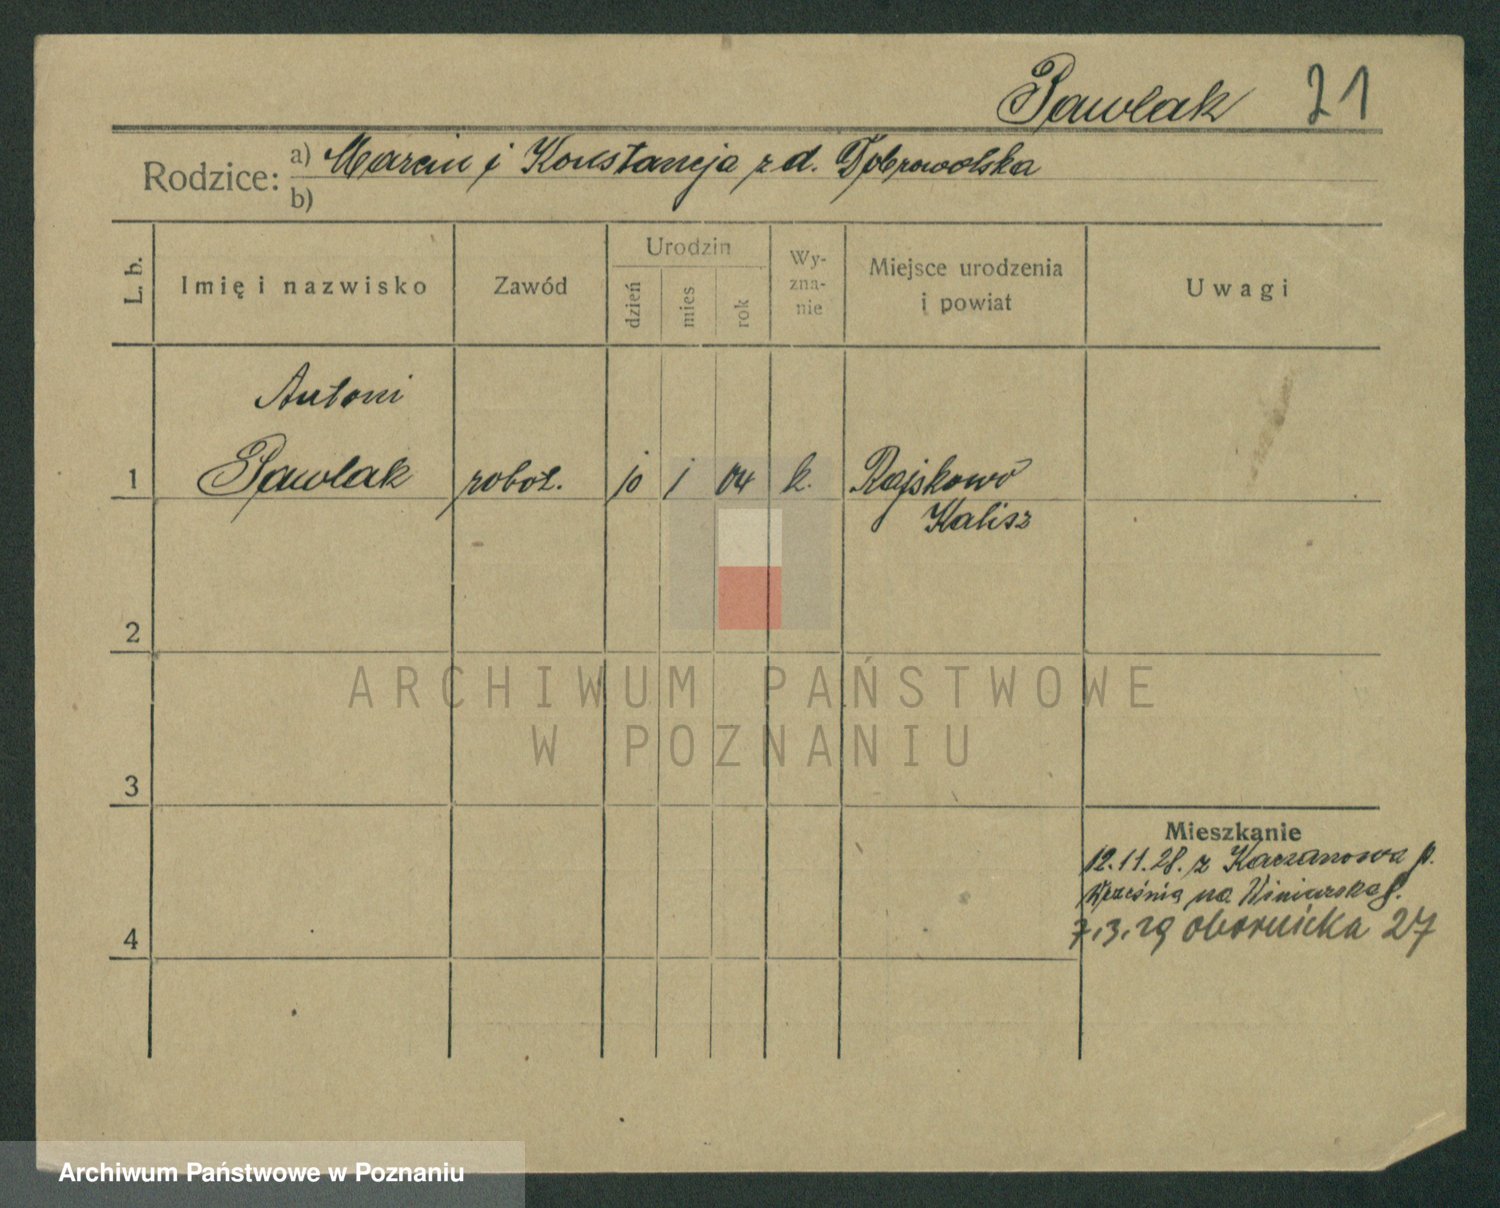 Pawlak 21
Rodzice: a) Marcin i Konstancja z d. Dobrowolska
b)
L. b. Imię i nazwisko Zawód Urodzin dzień mies rok Wy-zna-nie Miejsce urodzenia i powiat Uwagi
Antoni
1 Pawlak robot. 10 1 04 k. Rajskowo
Kalisz
2
ARCHIWUM PAŃSTWOWE
W POZNANIU
3
Mieszkanie
12.11.28. z Kaczanowa p.
Września na Winiarska 8.
4 7.3.29 obornicka 27
Archiwum Państwowe w Poznaniu